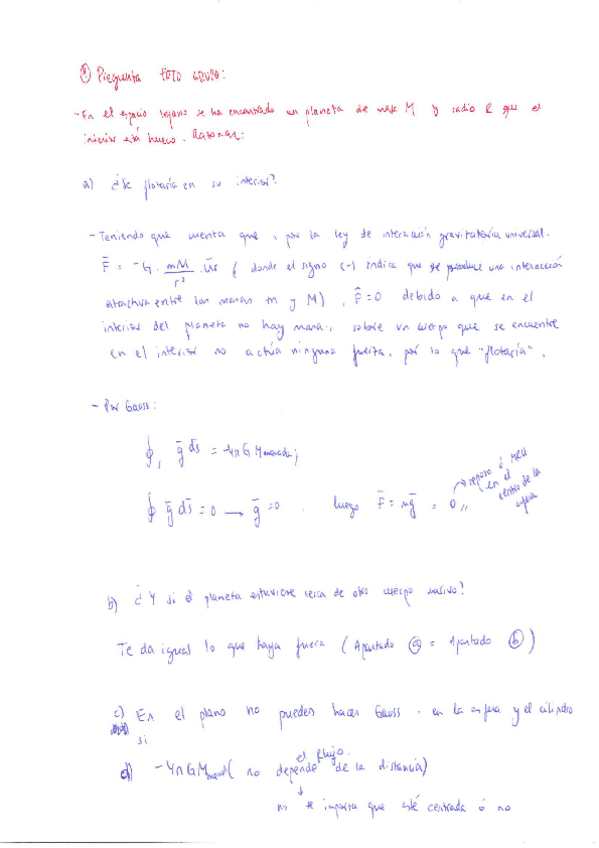 ① Pregunta FOTO GRUPO:
- En el espacio lejano se ha encontrado un planeta de masa M y radio R que el
interior está hueco. Razonar:
a) ¿Se flotaría en su interior?
- Teniendo que cuenta que, por la ley de interacción gravitatoria universal.
F̄ = -G · mM/r² · ūr ( donde el signo (-) indica que se produce una interacción
atractiva entre las masas m y M) , F̄ = 0 debido a que en el
interior del planeta no hay masa, sobre un cuerpo que se encuentre
en el interior no actúa ninguna fuerza, por lo que "flotaría".
- Por Gauss:
∮ ḡ ds̄ = -4πG M encerrada;
∮ ḡ ds̄ = 0 → ḡ = 0 . luego F̄ = mḡ = 0,, → reposo ó MRU
en el
centro de la
esfera
b) ¿Y si el planeta estuviese cerca de otro cuerpo masivo?
Te da igual lo que haya fuera ( Apartado ⓐ = Apartado ⓑ )
c) En el plano no puedes hacer Gauss. en la esfera y el cilindro
si
d) -4πGM ( no depende el flujo. de la distancia)
↓
no te importa que esté centrada ó no